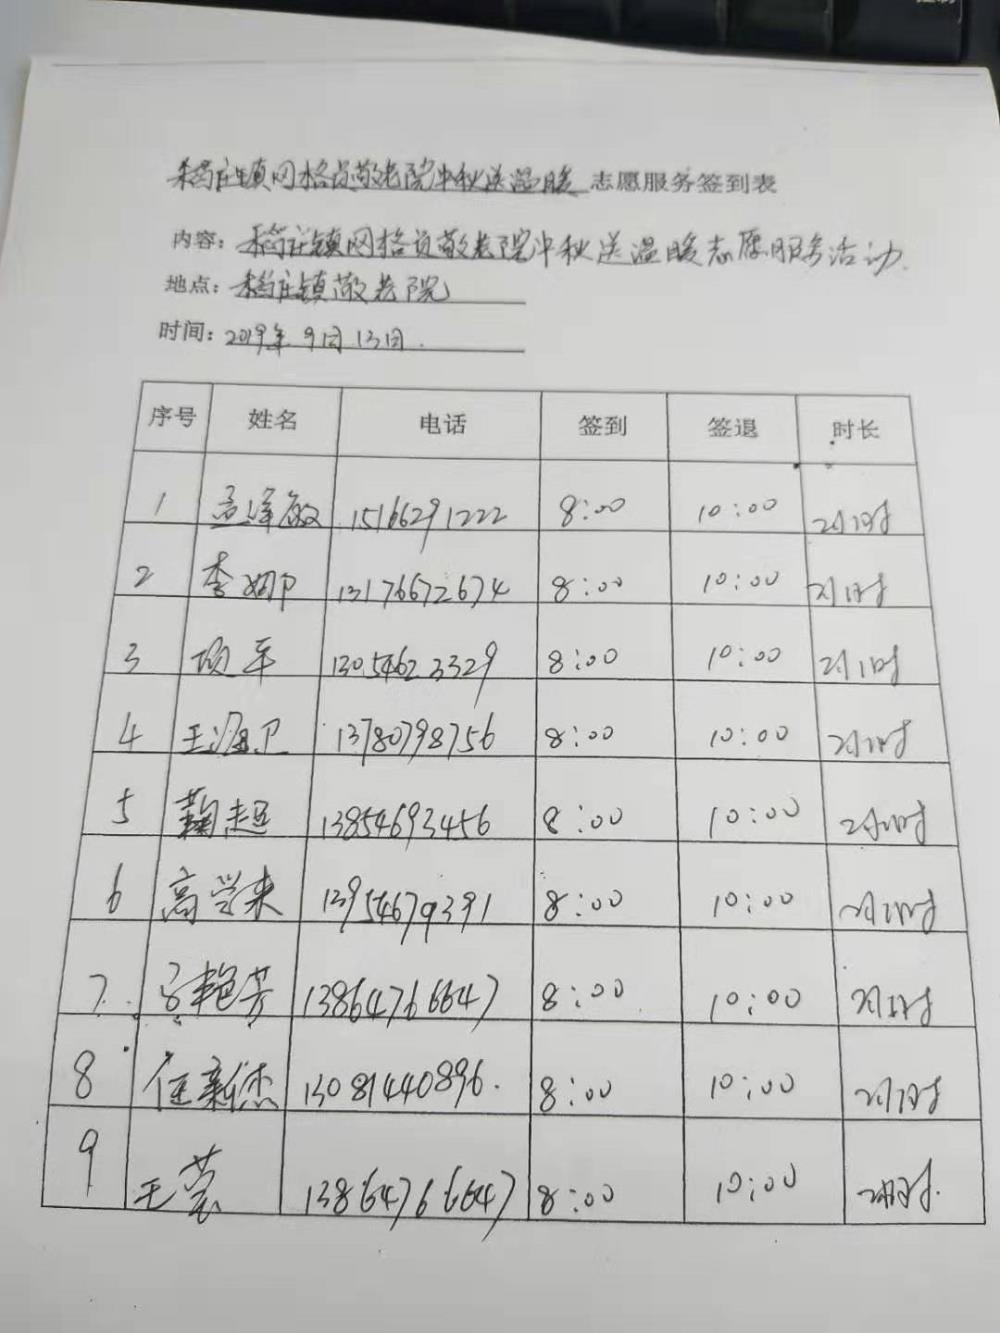 稻庄镇网格员敬老院中秋送温暖志愿服务签到表
内容：稻庄镇网格员敬老院中秋送温暖志愿服务活动.
地点：稻庄镇敬老院
时间：2019年9月13日.
序号 姓名 电话 签到 签退 时长
1 孟泽敏 15166291222 8:00 10:00 2小时
2 李娜 13176672674 8:00 10:00 2小时
3 项军 13054623329 8:00 10:00 2小时
4 王海卫 13780798756 8:00 10:00 2小时
5 鞠超 13854693456 8:00 10:00 2小时
6 高学来 13954679391 8:00 10:00 2小时
7. 艳芳 13864766647 8:00 10:00 2小时
8 任新杰 13081440896. 8:00 10:00 2小时
9 王莹 13864766647 8:00 10:00 2小时.